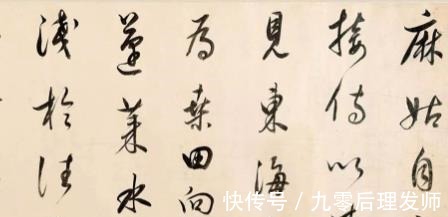 麻姑自
接侍以
見東海
為桑田向
蓬莱水
淺於往
快传号／九零后理发师